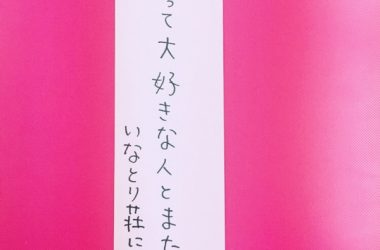 って大好きな人とまた
いなとり荘に